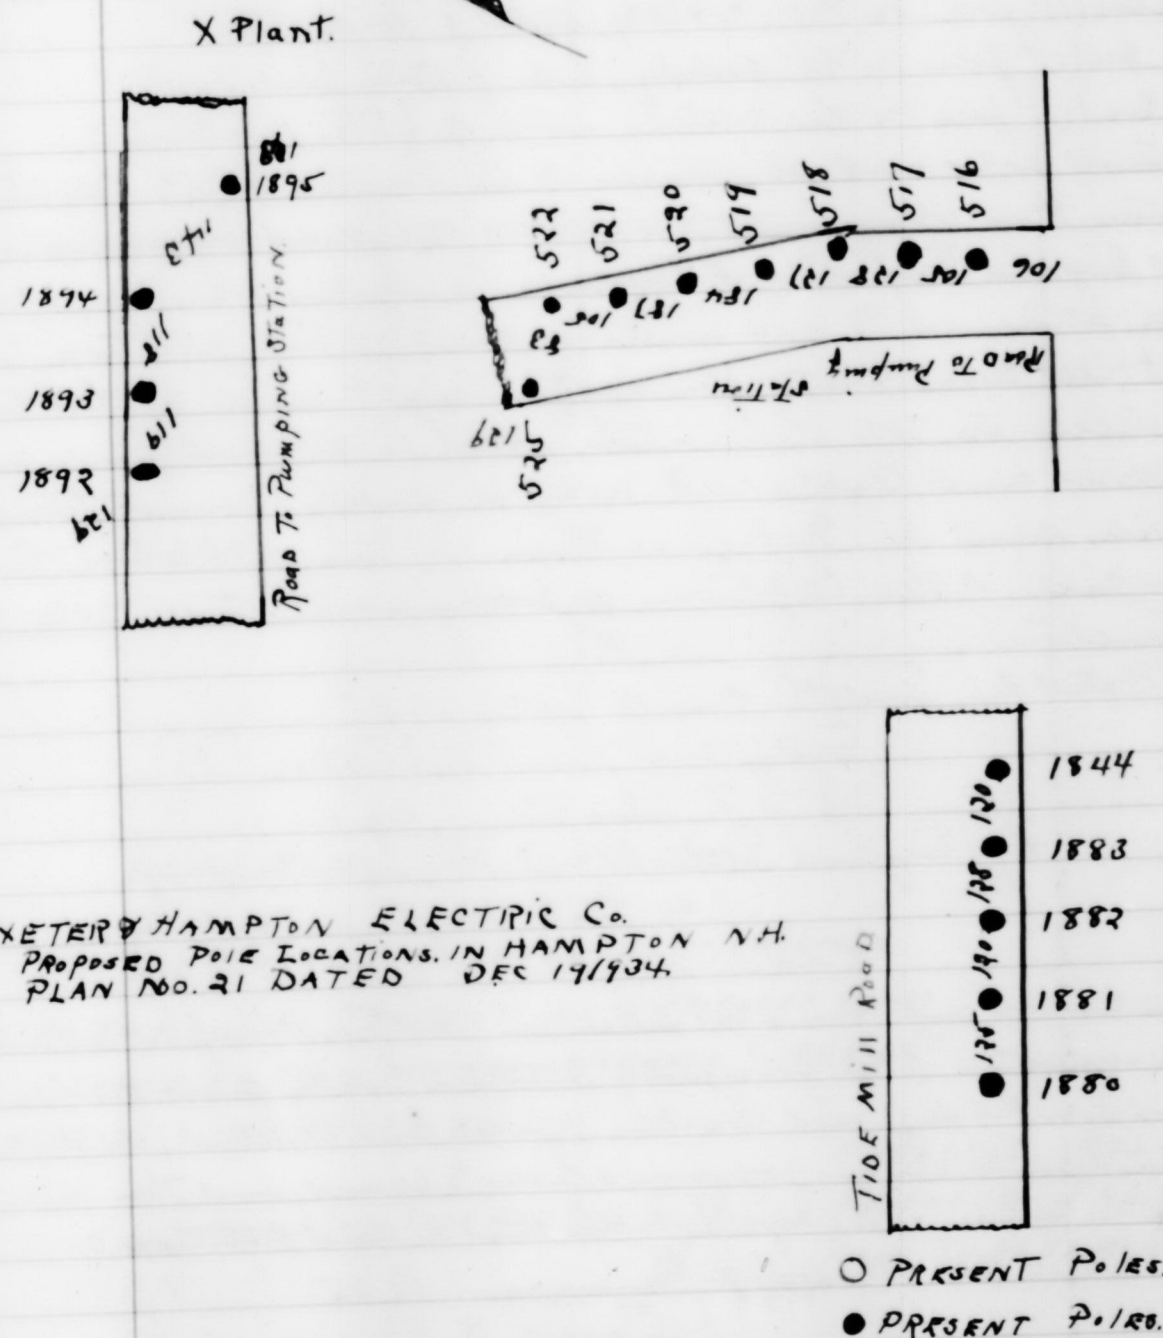 X Plant.
1895
143
1894
118
1893
119
1892
129
Road To Pumping Station.
522
521
520
519
518
517
516
83
105
187
184
127
128
105
106
Road To Pumping
Station
129
525
1844
120
1883
128
1882
190
1881
175
1880
Tide Mill Road
XETER & HAMPTON ELECTRIC Co.
PROPOSED Pole Locations. IN HAMPTON N.H.
PLAN No. 21 DATED DEC 19 1934
PRESENT Poles.
PRESENT Poles.